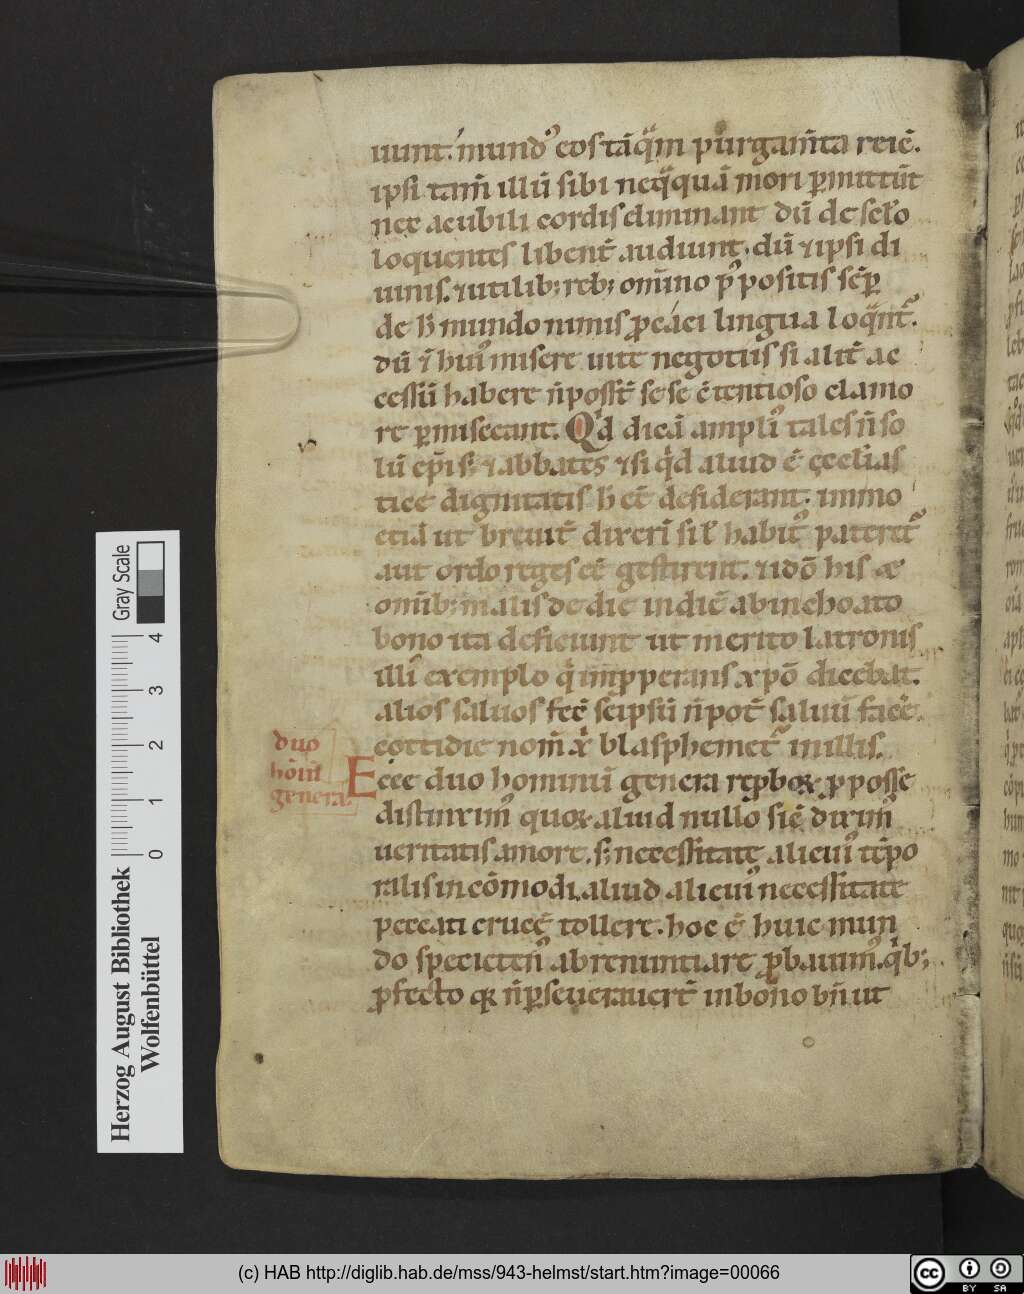 uunt. mund᾽ eos tāqͣm purgam̄ta reic̄.
ipsi tam̄ illū sibi neqͣquā mori ꝑmittūt
nec a cubili cordis eliminant dū de sclo
loquentes libent̄ audiunt. dū ⁊ ipsi di
uinis. ⁊ utilib; reb; om̄ino p̄positis sēꝑ
de h̄ mundo nimis ꝓcaci lingua loqͣnt᷑.
dū ī hui᾽ misere uite negotiis si alit̄ ac
cessū habere n̄ poss̄t sese c̄tentioso clamo
re ꝑmisceant. Qͥd dicā ampli᾽ tales n̄ so
lū ep̄i s; ⁊ abbates ⁊ si qͥd aliud ē ęcclias
tice dignitatis h̄ ēē desiderant. immo
etiā ut breuit̄ dixerī sil̄ habit᾽ pateret᷑
aut ordo reges ēē gestirent. ⁊ idō his ⁊
om̄ib; malis de die in diē ab inchoato
bono ita deficiunt ut merito latronis
illi᾽ exemplo qͥ imꝓperans xp̄o dicebat.
alios saluos fec̄ seipsū n̄ pot̄ saluū facē.
cottidie nom̄ xp̄i blasphemet᷑ in illis.
duo
hōīū
genera.
Ecce duo hominū genera rep̱boꝝ ꝓ posse
distinxim᾽ quoꝝ aliud nullo sic̄ dixim᾽
ueritatis amore. s; necessitate alicui᾽ tēpo
ralis incōmodi. aliud alicui᾽ necessitate
peccati crucē tollere. hoc ē huic mun
do specieten᾽ abrenuntiare ꝓbauim᾽. qͥb;
ꝓfecto qꝛ n̄ ꝑseuerauert̄ in bono bn̄ ut
Herzog August Bibliothek
Wolfenbüttel
Gray Scale
0 1 2 3 4
(c) HAB http://diglib.hab.de/mss/943-helmst/start.htm?image=00066
cc BY SA